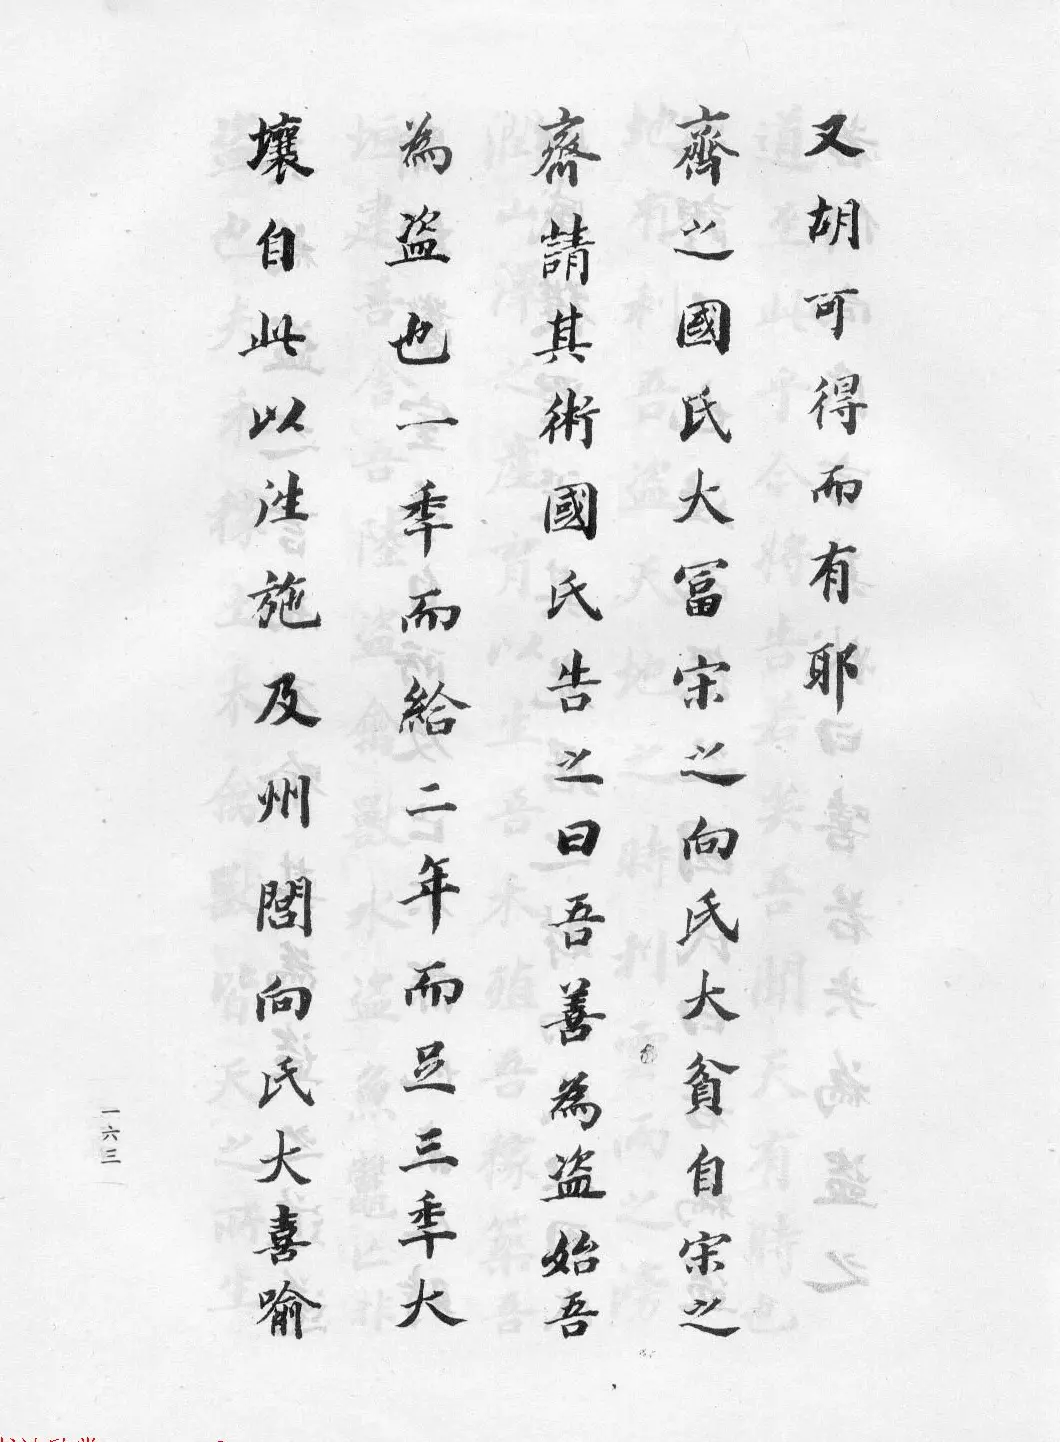 又胡可得而有耶
齊之國氏大冨宋之向氏大貧自宋之
齊請其術國氏告之曰吾善為盗始吾
為盗也一季而給二年而足三季大
壤自此以泩施及州閭向氏大喜喻
一六三